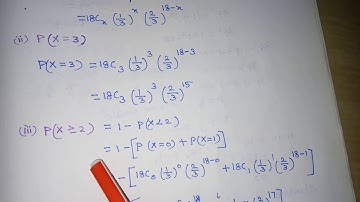 =18Cₓ (1/3)ˣ (2/3)¹⁸⁻ˣ
(ii) P(X=3)
P(X=3) = 18C₃ (1/3)³ (2/3)¹⁸⁻³
= 18C₃ (1/3)³ (2/3)¹⁵
(iii) P(X≥2) = 1 - P(X<2)
= 1 - [P(X=0) + P(X=1)]
- [18C₀ (1/3)⁰ (2/3)¹⁸⁻⁰ + 18C₁ (1/3)¹ (2/3)¹⁸⁻¹]